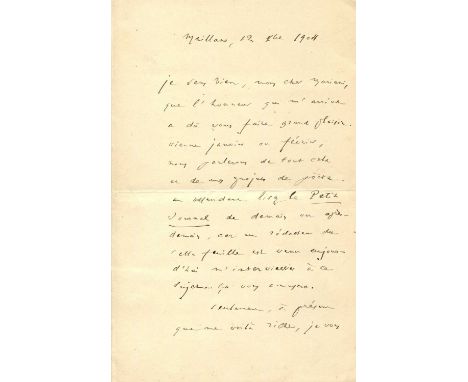 Maillane, 12 Xbre 1904
je sens bien, mon cher Mariani,
que l'honneur qui m'arrive
a dû vous faire grand plaisir.
Vienne janvier ou février,
nous parlerons de tout cela
et de vos projets de
en attendant lisez le Petit
Journal de demain ou après-
demain, car un rédacteur de
cette feuille est venu aujour-
d'hui m'interviewer à ce
sujet
Seulement, à présent
que me voilà riche, je vous